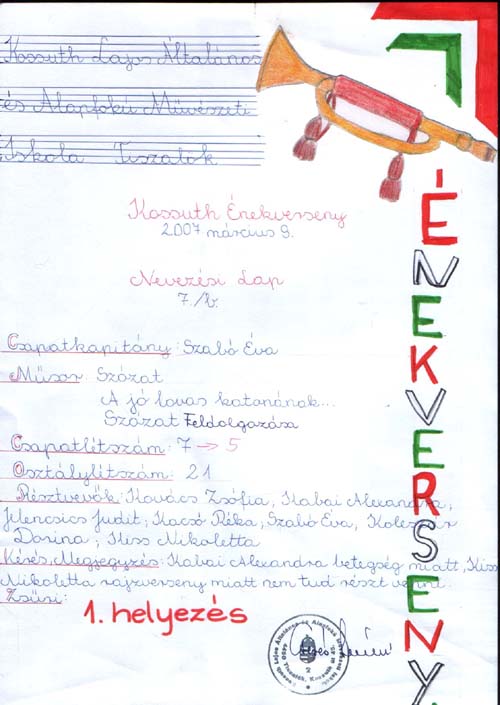 Kossuth Lajos Általános
és Alapfokú Művészeti
Iskola Tiszalök
Kossuth Énekverseny
2007 március 9.
Nevezési Lap
7./b.
Csapatkapitány: Szabó Éva
Műsor: Szózat
A jó lovas katonának...
Szózat Feldolgozása
Csapatlétszám: 7 → 5
Osztálylétszám: 21
Résztvevők: Kovács Zsófia, Kabai Alexandra,
Jelencsics Judit, Kacsó Réka, Szabó Éva, Koleszár
Dorina, Kiss Nikoletta
Kérés, Megjegyzés: Kabai Alexandra betegség miatt, Kiss
Nikoletta rajzverseny miatt nem tud részt venni.
Zsűri:
1. helyezés
ÉNEKVERSENY